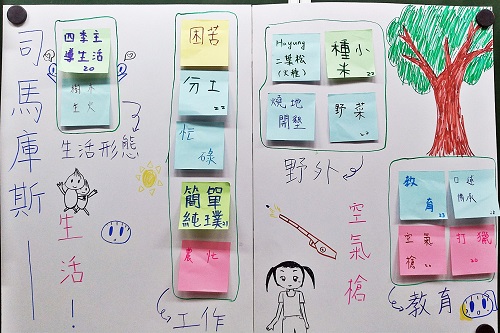 司馬庫斯——
生活！
四季主
導生活
20
樹木
生火
生活形態
困苦
分工
22
忙
碌
簡單
純璞
21
農忙
工作
Huyung
二葉松
(火種)
種小
米
22
燒地
開墾
野菜
野外
空氣槍
教
育
23
口述
傳承
空氣
槍
打獵
20
教育